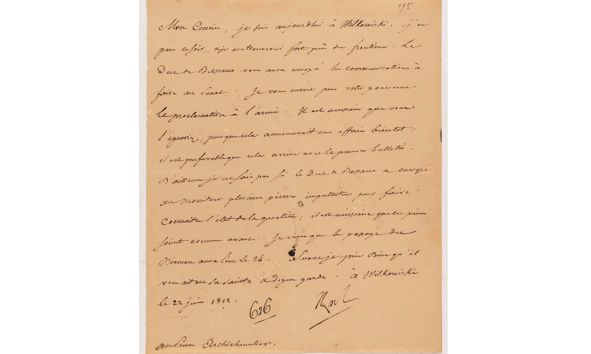 195
Mon Cousin, je suis aujourd'hui à Wilkowiski. j'en
pars ce soir, et je me trouverai fort près des frontières. Le
Duc de Bassano vous aura envoyé les communications à
faire au Senat. Je vous envoie pour votre gouverne
la proclamation à l'armée. Il est nécessaire que vous
l'ignoriez, puisque cela annoncerait une affaire bientôt;
il est préférable que cela arrive avec le premier bulletin.
D'ailleurs je ne sais pas si le Duc de Bassano a envoyé
au moniteur plusieurs pièces importantes pour faire
connaitre l'état de la question; il est nécessaire que ces pièces
soient connues avant. Je crois que le passage du
Niemen aura lieu le 24. Sur ce je prie Dieu qu'il
vous ait en sa sainte et digne garde. à Wilkowiski
le 22 juin 1812.
606
au Prince Archichancelier.